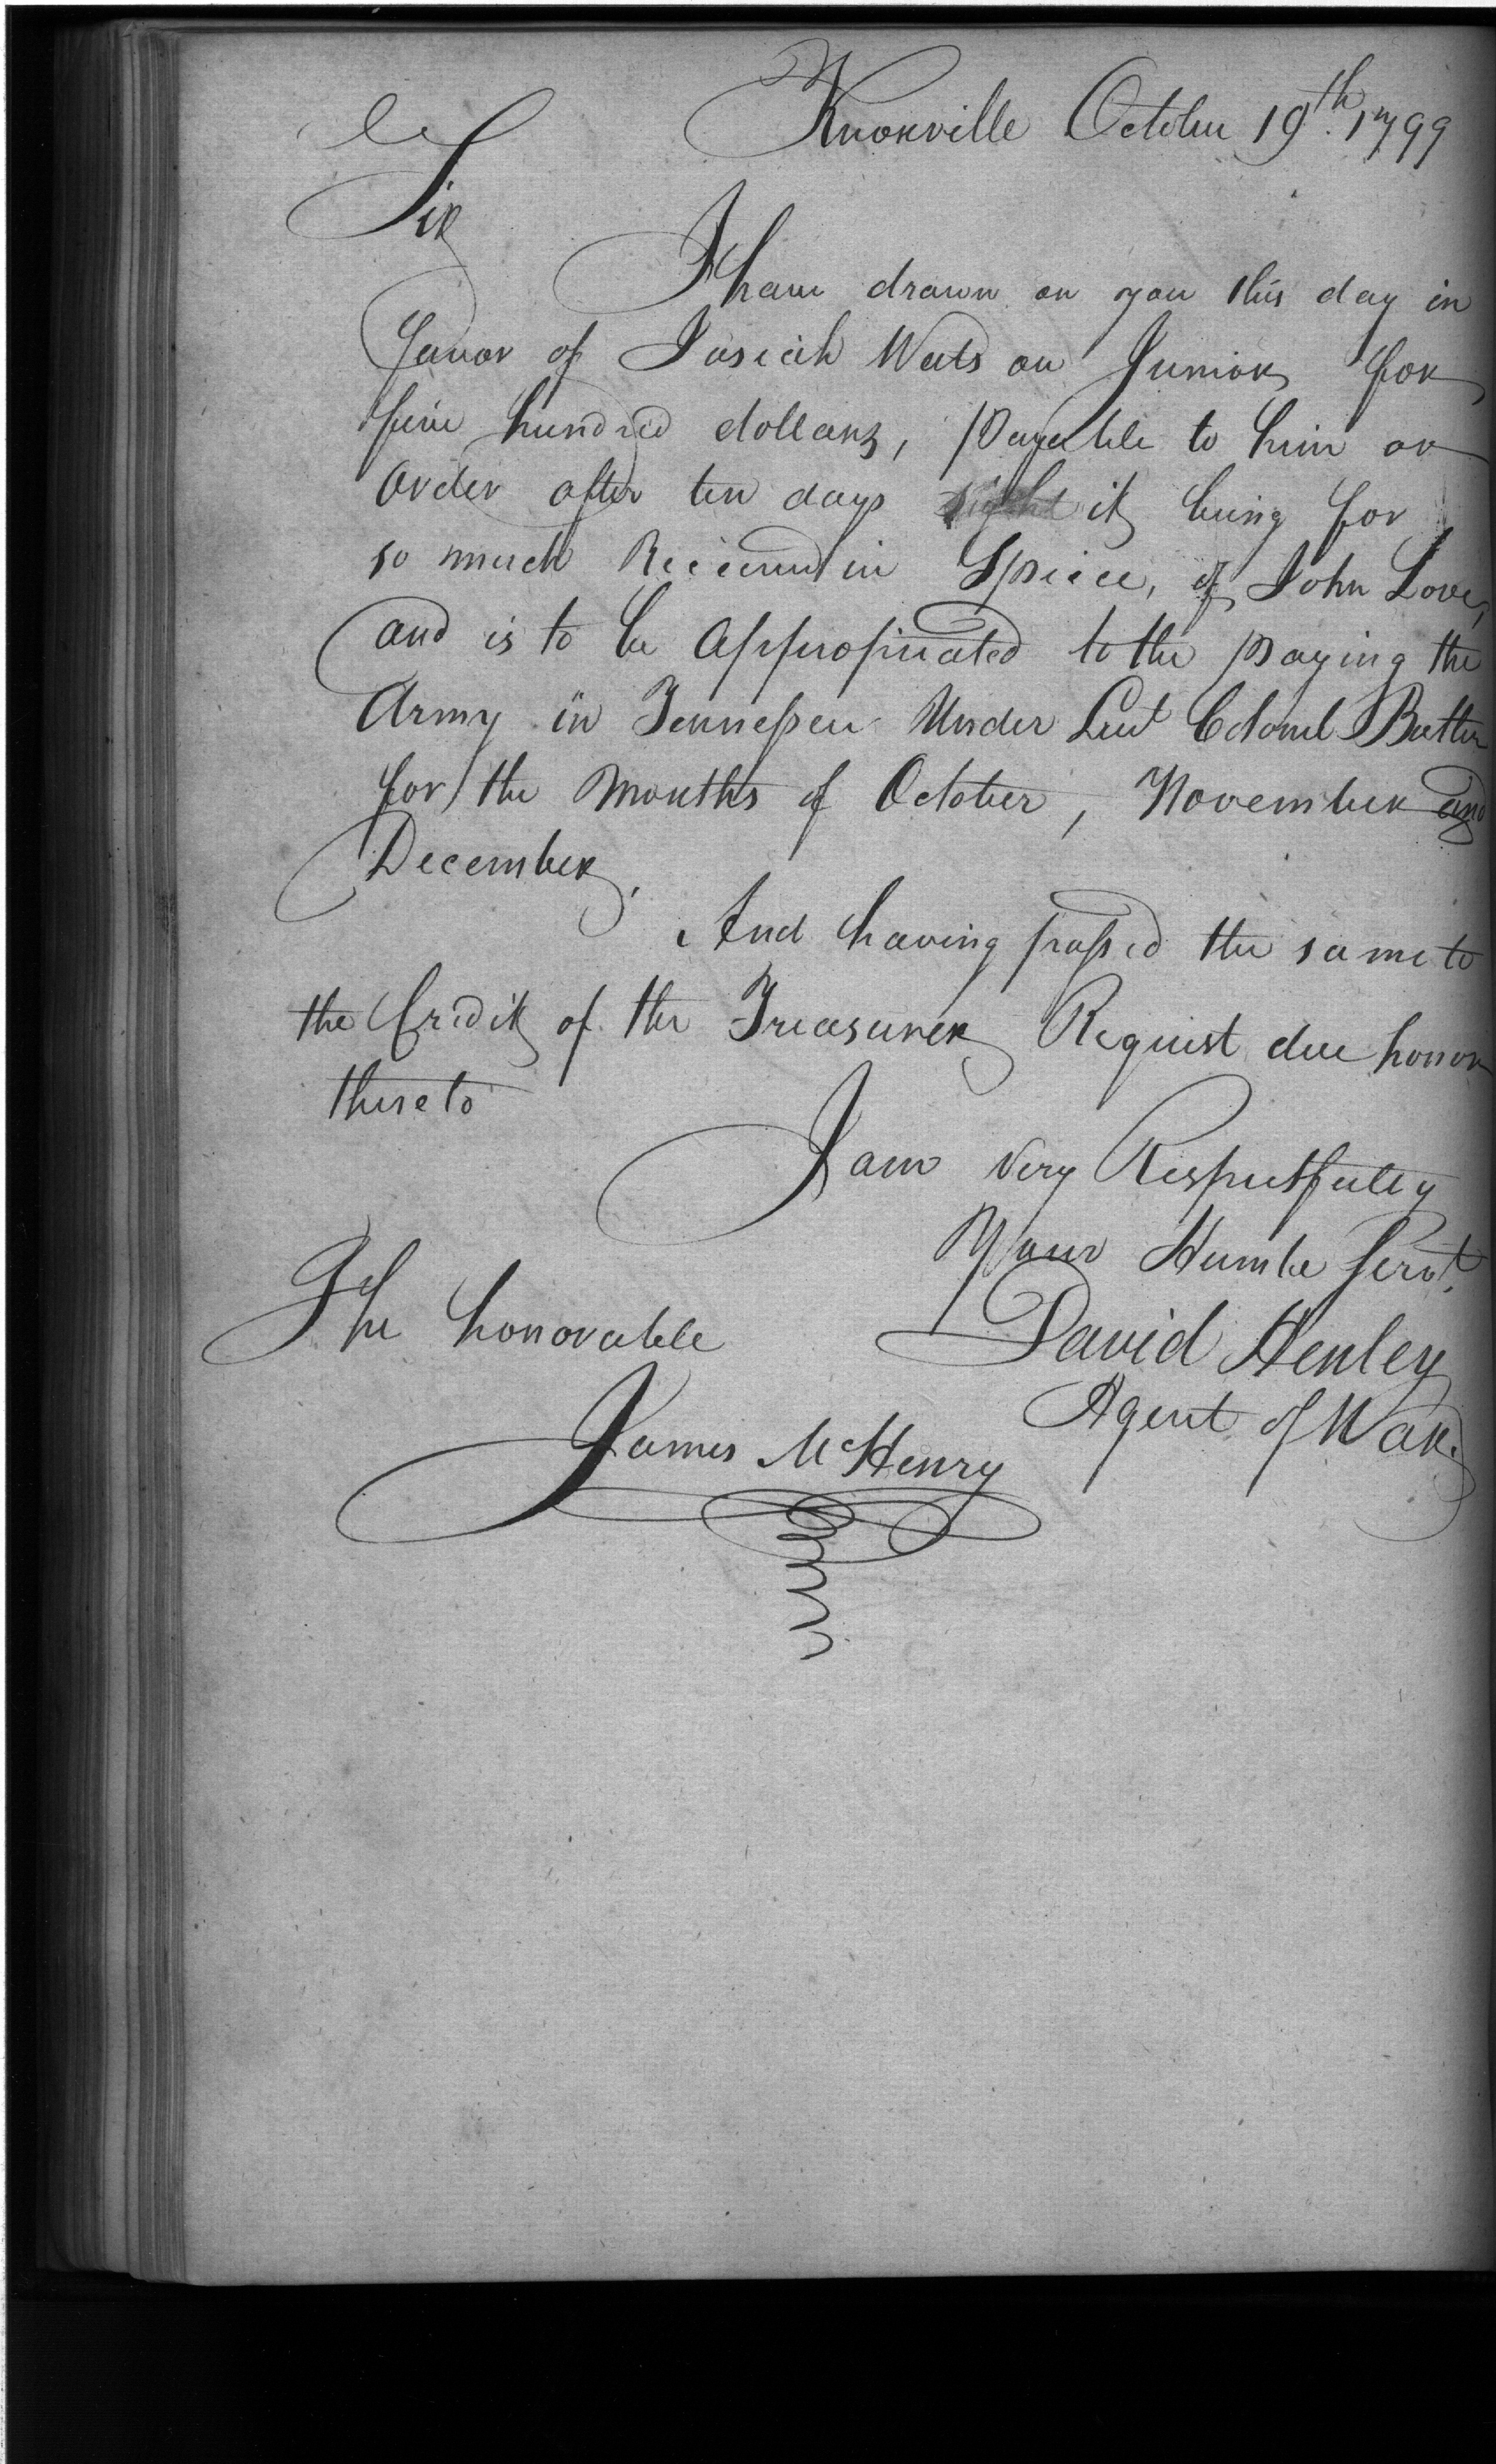 Knoxville October 19th. 1799
Sir
I have drawn on you this day in
favor of Josiah Watson Junior for
five hundred dollars, Payable to him or
order after ten days sight it being for
so much Received in Specie, of John Love,
and is to be Appropriated to the paying the
Army in Tennessee Under Leut Colonel Butler
for the Months of October, November and
December.
And having passed the same to
the Credit of the Treasurer Request due honor
thereto
I am Very Respectfully
Your Humle Servt.
David Henley
Agent of War.
The honorable
James McHenry